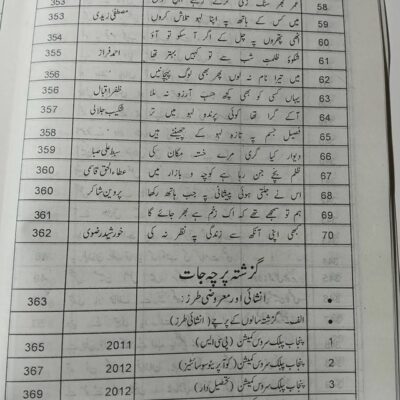 58 عمر بھر سنگ زنی کرتے رہے اہل 353
59 میں کس کے ہاتھ پہ اپنا لہو تلاش کروں مصطفیٰ زیدی 353
60 انہی پتھروں پہ چل کے اگر آ سکو تو آؤ
61 شکوۂ ظلمتِ شب سے تو کہیں بہتر تھا احمد فراز 355
62 میں تیرا نام نہ لوں پھر بھی لوگ پہچانیں 356
63 یہاں کسی کو بھی کچھ حسب آرزو نہ ملا ظفر اقبال 356
64 آکے گرا تھا کوئی پرندہ لہو میں تر شکیب جلالی 357
65 فصیل جسم پہ تازہ لہو کے چھینٹے ہیں 358
66 دیوار کیا گری مرے خستہ مکان کی سبط علی صبا 359
67 ظلم بچے جن رہا ہے کوچہ و بازار میں عطاء الحق قاسمی 360
68 اس نے جلتی ہوئی پیشانی پہ جب ہاتھ رکھا پروین شاکر 360
69 ہم تو سمجھے تھے کہ اک زخم ہے بھر جائے گا 361
70 کبھی اپنی آنکھ سے زندگی پہ نظر نہ کی خورشید رضوی 362
گزشتہ پرچہ جات
• انشائی اور معروضی طرز: 363
• الف۔ گزشتہ سالوں کے پرچے (انشائی طرز)
1 پنجاب پبلک سروس کمیشن (پی سی ایس) 2011 365
2 پنجاب پبلک سروس کمیشن (کوآپریٹو سوسائٹیز) 2012 367
3 پنجاب پبلک سروس کمیشن (تحصیل دار) 2012 369